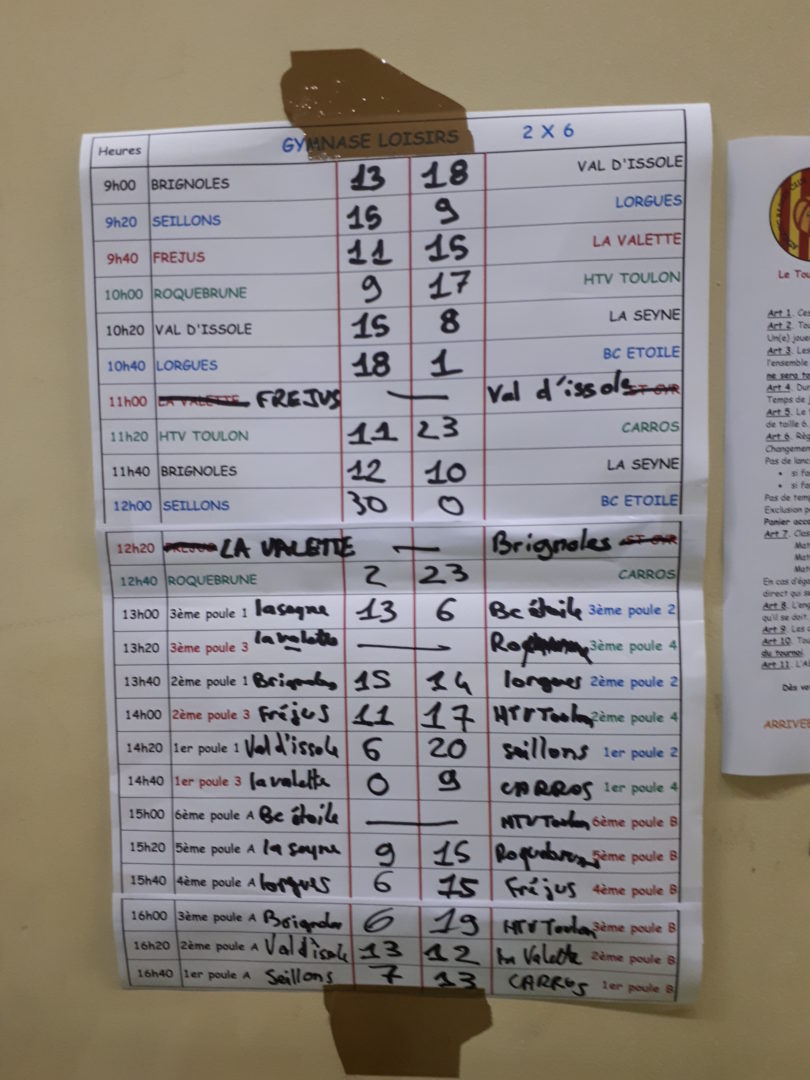 Heures GYMNASE LOISIRS 2 X 6
9h00 BRIGNOLES 13 18 VAL D'ISSOLE
9h20 SEILLONS 15 9 LORGUES
9h40 FREJUS 11 15 LA VALETTE
10h00 ROQUEBRUNE 9 17 HTV TOULON
10h20 VAL D'ISSOLE 15 8 LA SEYNE
10h40 LORGUES 18 1 BC ETOILE
11h00 LA VALETTE FREJUS — Val d'issole ST CYR
11h20 HTV TOULON 11 23 CARROS
11h40 BRIGNOLES 12 10 LA SEYNE
12h00 SEILLONS 30 0 BC ETOILE
12h20 FREJUS LA VALETTE — Brignoles ST CYR
12h40 ROQUEBRUNE 2 23 CARROS
13h00 3ème poule 1 la seyne 13 6 Bc étoile 3ème poule 2
13h20 3ème poule 3 la valette — 3ème poule 4
13h40 2ème poule 1 Brignoles 15 14 lorgues 2ème poule 2
14h00 2ème poule 3 Fréjus 11 17 HTV Toulon 2ème poule 4
14h20 1er poule 1 Val d'issole 6 20 seillons 1er poule 2
14h40 1er poule 3 la valette 0 9 CARROS 1er poule 4
15h00 6ème poule A Bc étoile — HTV Toulon 6ème poule B
15h20 5ème poule A la seyne 9 15 Roquebrune 5ème poule B
15h40 4ème poule A lorgues 6 15 Fréjus 4ème poule B
16h00 3ème poule A Brignoles 6 19 HTV Toulon 3ème poule B
16h20 2ème poule A Val d'issole 13 12 La Valette 2ème poule B
16h40 1er poule A Seillons 7 13 CARROS 1er poule B
Le Tou
Art 1. Ces
Art 2. Tou
Un(e) joue
Art 3. Les
l'ensemble
ne sera to
Art 4. Dur
Temps de j
Art 5. Le
de taille 6.
Art 6. Règ
Changemen
Pas de lanc
• si fa
• si fa
Pas de temp
Exclusion p
Panier acco
Art 7. Clas
Mat
Mat
Mat
En cas d'éga
direct qui se
Art 8. L'en
qu'il se doit.
Art 9. Les
Art 10. Tou
du tournoi.
Art 11. L'A
Dès vo
ARRIVEE